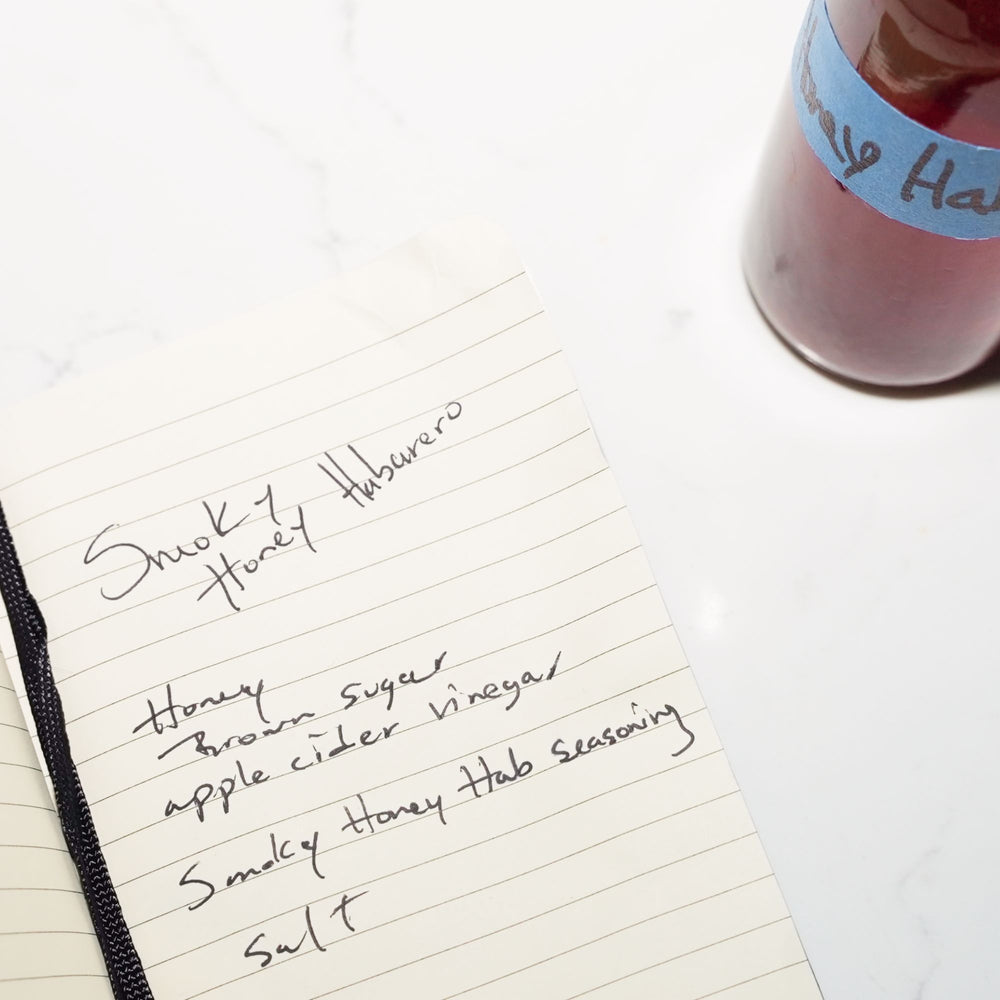 Hab
Smoky
Honey Habanero
Honey
Brown sugar
apple cider vinegar
Smoky Honey Hab seasoning
Salt